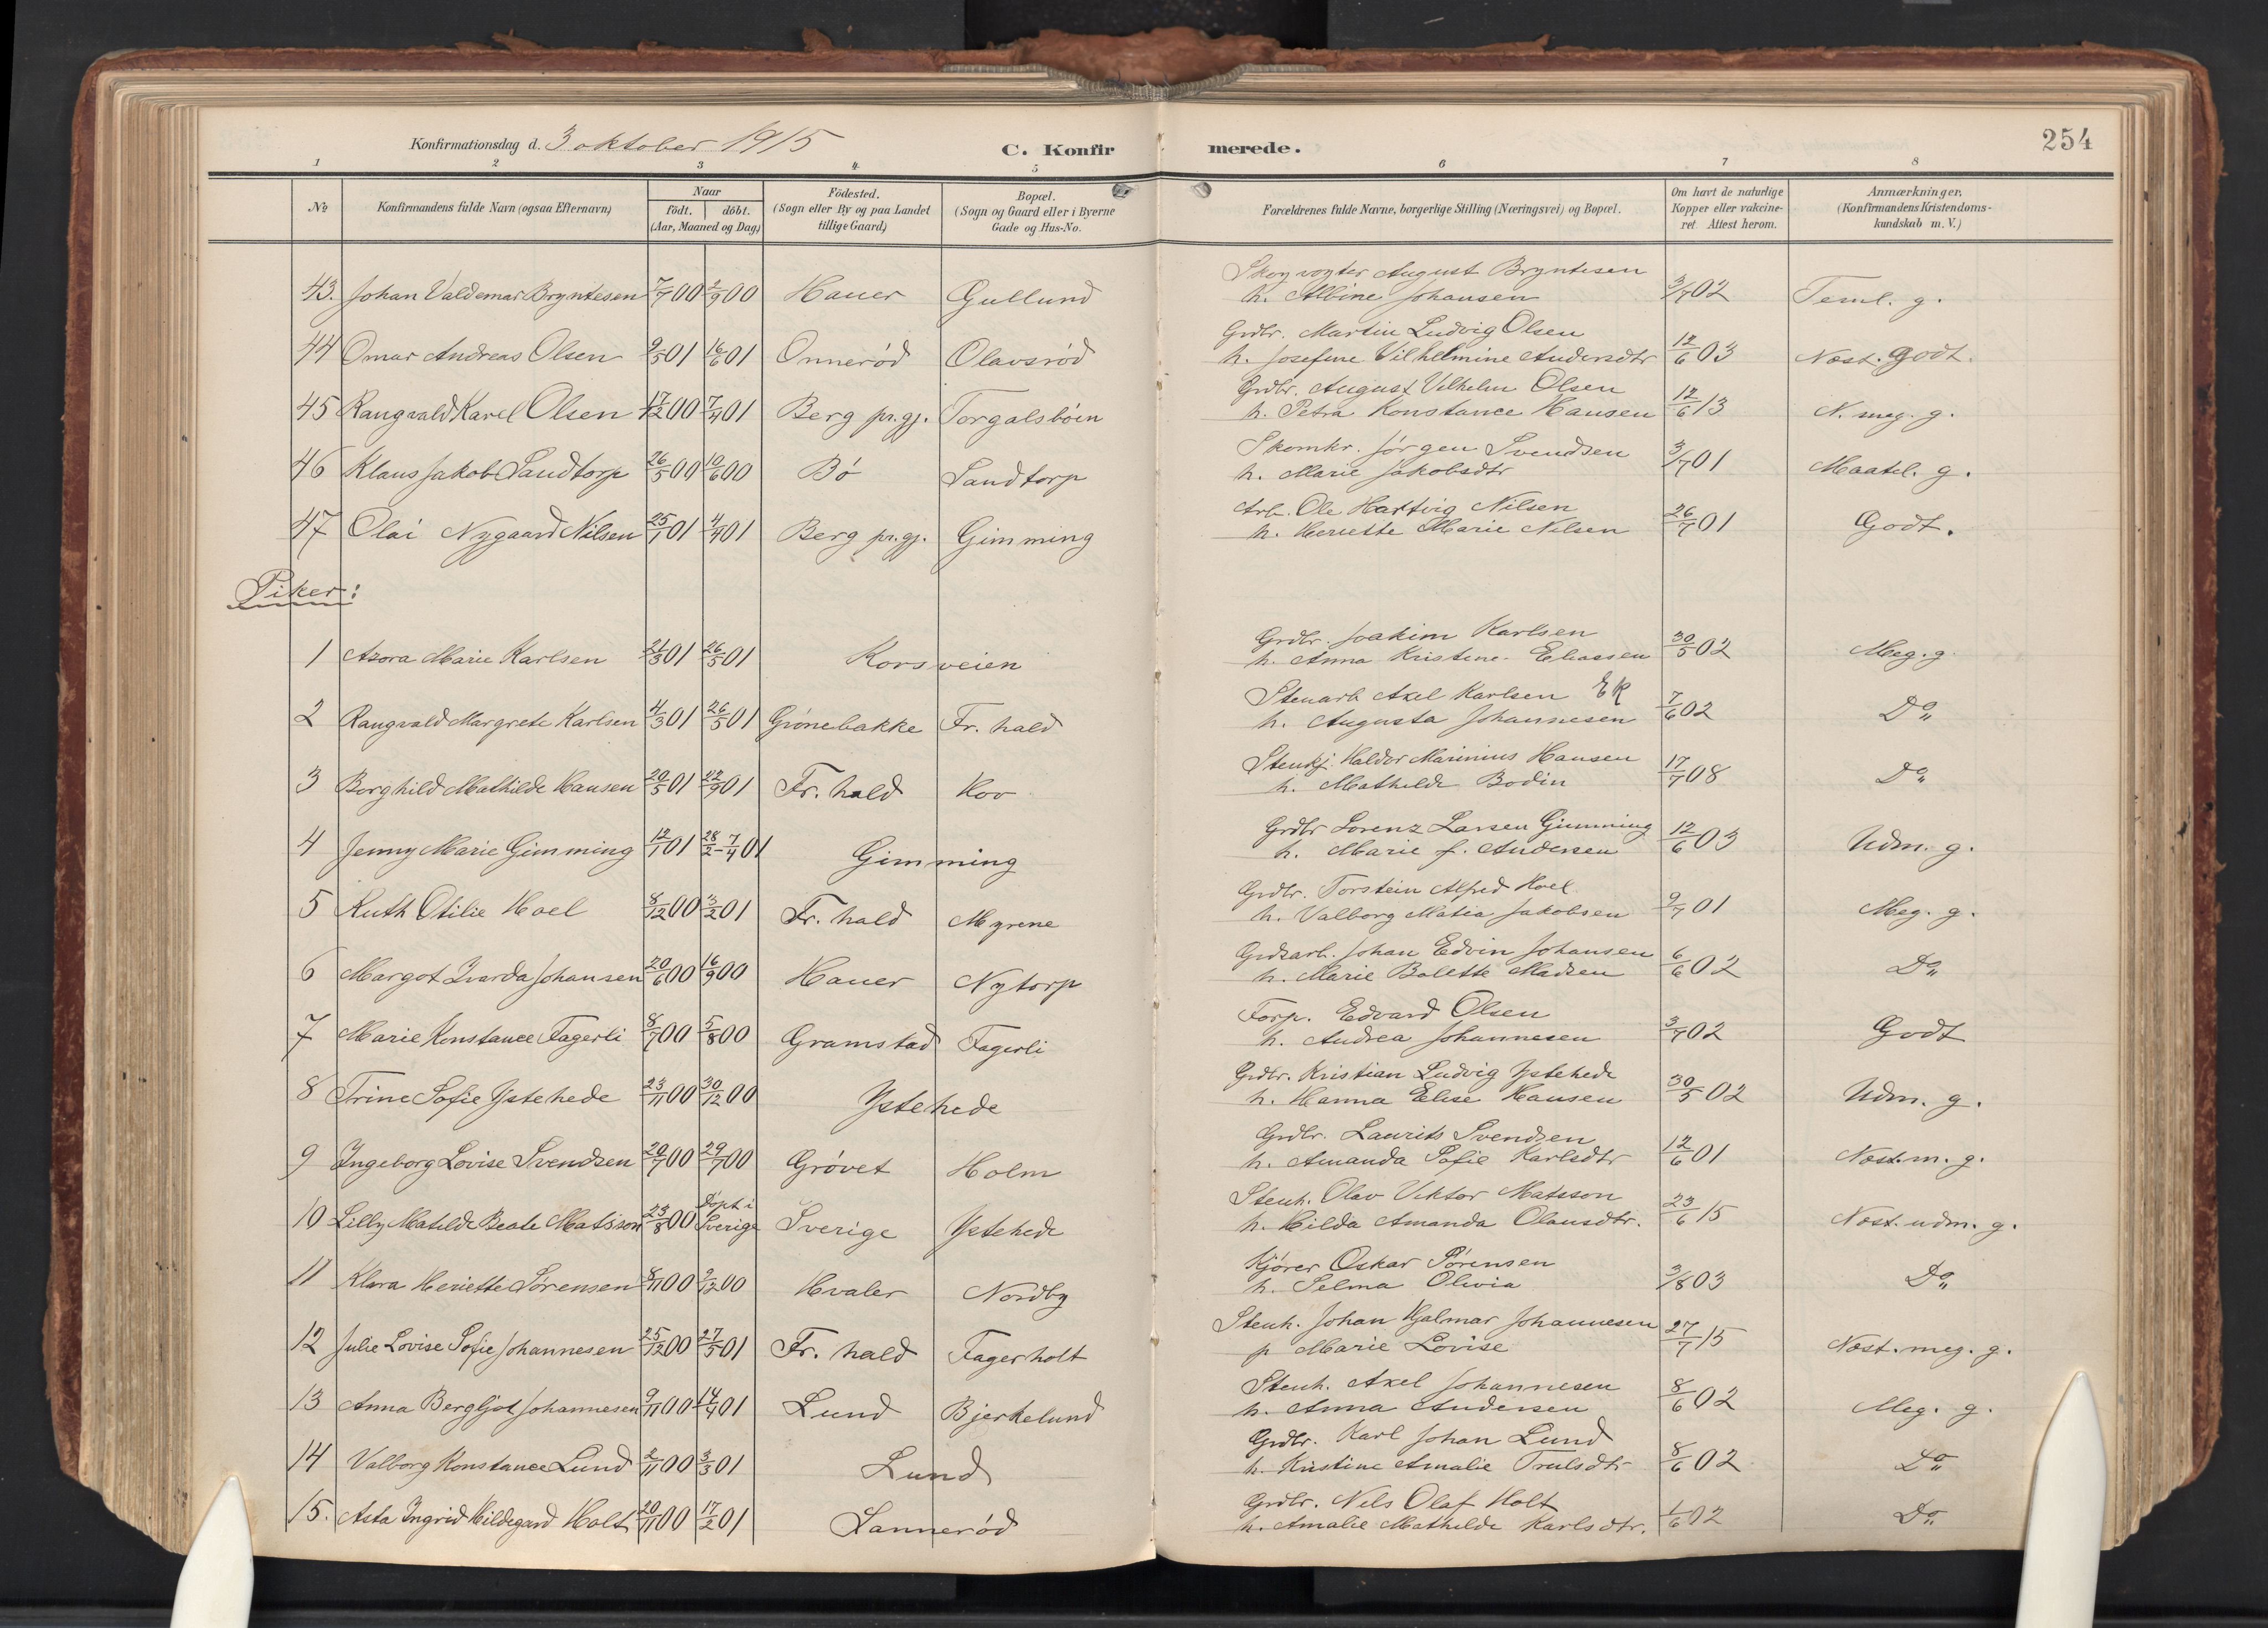 Konfirmationsdag d. 3 oktober 1915
C. Konfirmerede.
254
1 2 3 4 5 6 7 8
No
Konfirmandens fulde Navn (ogsaa Efternavn)
Naar
født. døbt.
(Aar, Maaned og Dag)
Födested.
(Sogn eller By og paa Landet
tillige Gaard)
Bopæl.
(Sogn og Gaard eller i Byerne
Gade og Hus-No.
Forældrenes fulde Navne, borgerlige Stilling (Næringsvei) og Bopæl.
Om havt de naturlige
Kopper eller vakcine-
ret. Attest herom.
Anmærkninger.
(Konfirmandens Kristendoms-
kundskab m. V.)
Skogvogter August Bryntesen
43. Johan Valdemar Bryntesen 7/7 00 2/9 00 Hauer Gullund h. Albine Johansen 3/7 02 Teml. g.
Grdbr. Martin Ludvig Olsen
44 Omar Andreas Olsen 9/5 01 16/6 01 Onnerød Olavsrød h. Josefine Vilhelmine Andersdtr 12/6 03 Næst. godt.
Grdbr. August Vilhelm Olsen
45 Rangvald Karel Olsen 17/12 00 7/4 01 Berg pr.gj. Torgalsbøen h. Petra Konstance Hansen 12/6 13 N. meg. g.
Skomkr. Jørgen Svendsen
46 Klaus Jakob Sandtorp 26/5 00 10/6 00 Bø Sandtorp h. Marie Jakobsdtr 3/7 01 Maatel. g.
Arb. Ole Hartvig Nilsen
47 Olai Nygaard Nilsen 25/1 01 4/4 01 Berg pr.gj. Gimming h. Henriette Marie Nilsen 26/7 01 Godt.
Piker:
Grdbr. Joakim Karlsen
1 Azora Marie Karlsen 21/3 01 26/5 01 Korsveien h. Anna Kristine Eliassen 30/5 02 Meg. g.
Stenarb Axel Karlsen EK
2 Rangvald Margrete Karlsen 4/3 01 26/5 01 Grønebakke Fr. hald h. Augusta Johannesen 7/6 02 Do"
Stenhj. Haldor Marinius Hansen
3 Borghild Mathilde Hansen 20/5 01 22/9 01 Fr. hald Kov h. Mathilde Bodin 17/7 08 Do"
Grdbr Lorenz Larsen Gimming
4 Jenny Marie Gimming 12/1 01 28/2 - 7/4 01 Gimming h. Marie f. Andersen 12/6 03 Udm. g.
Grdbr. Torstein Alfred Hoel
5 Ruth Otilie Hoel 8/12 00 3/2 01 Fr. hald Myrene h. Valborg Matia Jakobsen 9/7 01 Meg. g.
Grdsarb. Johan Edvin Johansen
6 Margot Ivarda Johansen 20/6 00 16/9 00 Hauer Nytorp h. Marie Bolette Madsen 6/6 02 Do"
Forp. Edvard Olsen
7 Marie Konstance Fagerli 8/7 00 5/8 00 Gramstad Fagerli h. Andrea Johannesen 3/7 02 Godt
Grdbr. Kristian Ludvig Ystehede
8 Trine Sofie Ystehede 23/11 00 30/12 00 Ystehede h. Hanna Elise Hansen 30/5 02 Udm. g.
Grdbr. Laurits Svendsen
9 Ingeborg Lovise Svendsen 20/7 00 29/7 00 Grøvet Holm h. Amanda Sofie Karlsdtr 12/6 01 Næst. m. g.
Stenh. Olav Viktor Matsson
10 Lilly Matilde Beate Matsson 23/8 00 Døpt i Sverige Sverige Ystehede h. Hilda Amanda Olausdtr. 23/6 15 Næst. udm. g.
Kjører Oskar Sørensen
11 Klara Henriette Sørensen 8/11 00 9/12 00 Hvaler Nordby h. Selma Olivia 3/8 03 Do"
Stenh. Johan Hjalmar Johannesen
12 Julie Lovise Sofie Johannesen 25/12 00 27/5 01 Fr. hald Fagerholt p Marie Lovise 27/7 15 Næst. meg. g.
Stenh. Axel Johannesen
13 Anna Bergljot Johannesen 9/11 00 14/4 01 Lund Bjerkelund h. Anna Andersen 8/6 02 Meg. g.
Grdbr. Karl Johan Lund
14 Valborg Konstance Lund 2/11 00 3/3 01 Lund h. Kristine Amalie Trulsdtr 8/6 02 Do"
Grdbr. Nils Olaf Holt
15. Asta Ingrid Hildegard Holt 20/11 00 17/2 01 Lannerød h. Amalie Mathilde Karlsdtr. 1/6 02 Do"